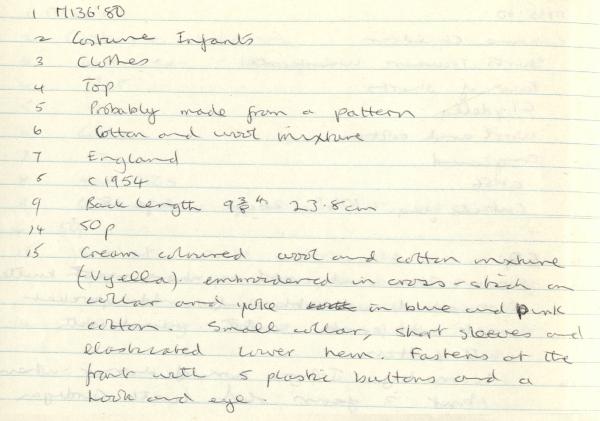 1 M136'80
2 Costume Infants
3 Clothes
4 Top
5 Probably made from a pattern
6 Cotton and wool mixture
7 England
8 C1954
9 Back length 9 3/8 in 23.8cm
14 50p
15 Cream coloured wool and cotton mixture
(Vyella) embroidered in cross-stitch on
collar and yoke in blue and pink
cotton. Small collar, short sleeves and
elasticated lower hem. Fastens at the
front with 5 plastic buttons and a
hook and eye.